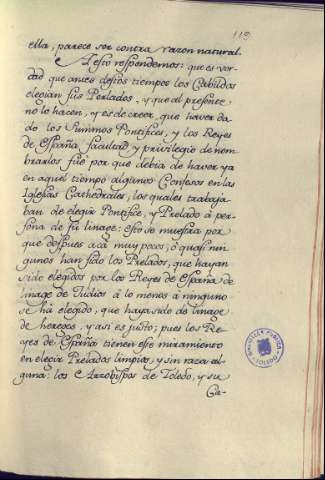 119
ella, parece ser contra razon natural.
Aesto respondemos: que es ver-
dad que antes destos tiempos los Cabildos
elegian sus Perlados, y que al presente
no lo hacen, y es de creer, que haver da-
do los Summos Pontifices, y los Reyes
de España facultad y privilegio de nom-
brarlos fue por que debia de haver ya
en aquel tiempo algunos Confesos en las
Iglesias Cathedrales, los quales trabaja-
ban de elegir Pontifice, y Prelado á per-
sona de su linage: esto se muestra por
que despues acá muy pocos, ó quasi nin
gunos han sido los Prelados, que hayan
sido elegidos por los Reyes de España de
linage de Judios á lo menos á ninguno
se há elegido, que haya sido de linage
de hereges, y asi es justo; pues los Re-
yes de España tienen este miramiento
en elegir Prelados limpios, y sin raza al-
guna: los Arzobispos de Toledo, y su
Ca-
BIBLIOTECA PUBLICA
TOLEDO